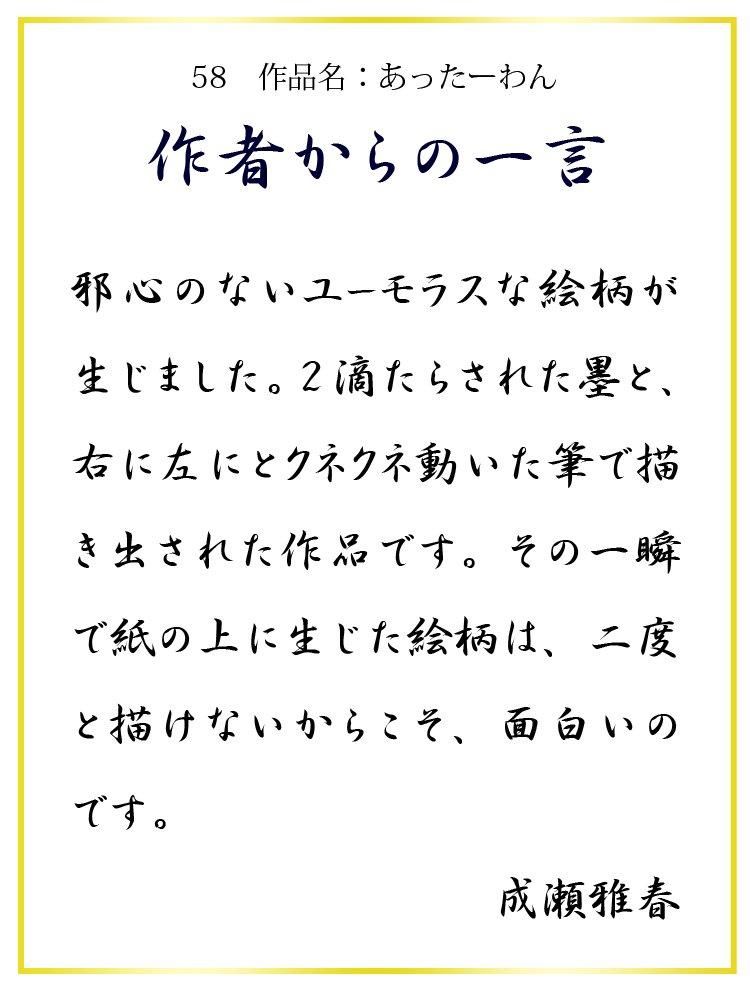 58　作品名：あったーわん
作者からの一言
邪心のないユーモラスな絵柄が
生じました。2滴たらされた墨と、
右に左にとクネクネ動いた筆で描
き出された作品です。その一瞬
で紙の上に生じた絵柄は、二度
と描けないからこそ、面白いの
です。
成瀬雅春